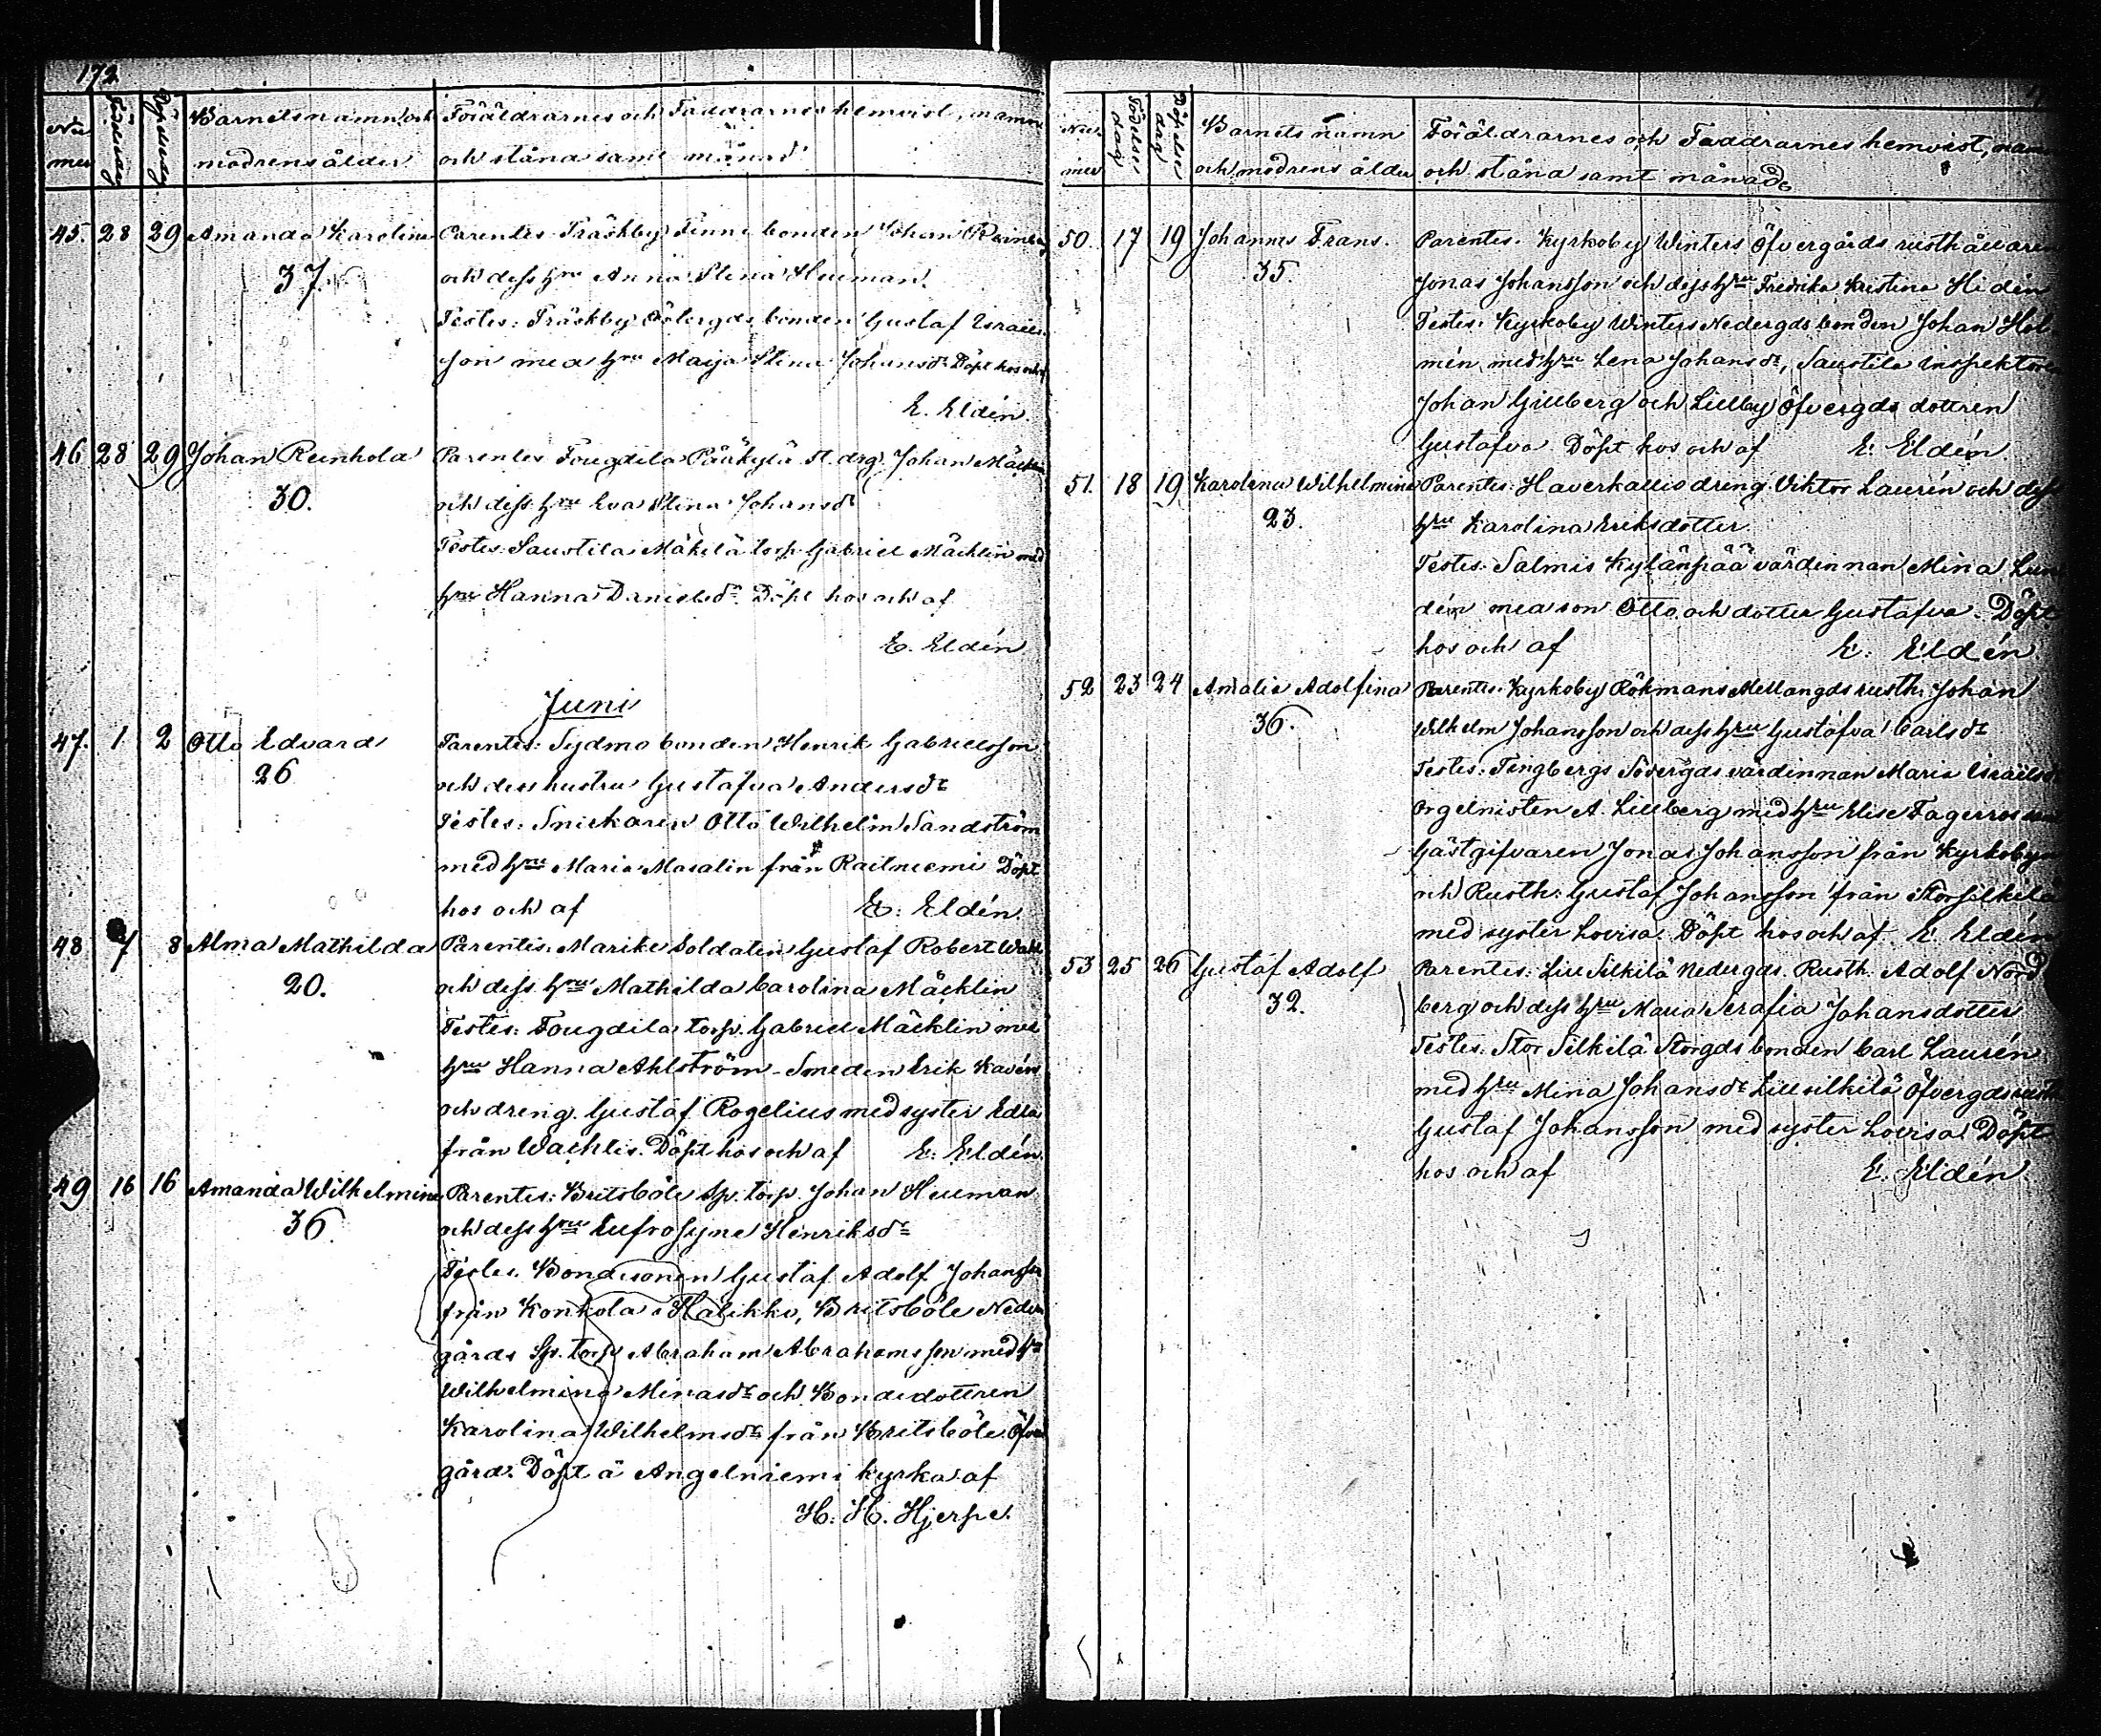 172
Nu
mer
Födelsedag
Döpelsedag
Barnets namn och
modrens ålder
Föräldrarnes och Faddrarnes hemvist, namn
och stånd samt månad
45. 28 29 Amanda Karolina Parentes Träskby Finne bonden Johan
37. och dess hru Anna Stina Heuman.
Testes: Träskby bonden Gustaf Israels
son med hru Maija Stina Johansdr Döpt hos och af
E. Eldén
46 28 29 Johan Reinhold Parentes Fougdila Pääkylä st. drg. Johan Mäcklin
30. och dess hru Eva Stina Johansdr
Testes: Saustila Mäkilä torp. Gabriel Mäcklin med
hru Hanna Danielsdr. Döpt hos och af
E. Eldén
Juni
47. 1 2 Otto Edvard Parentes: Sydmo bonden Henrik Gabrielsson
26 och dess hustru Gustafva Andersdr
Testes: Snickaren Otto Wilhelm Sandström
med hru Maria Masalin från Raitniemi Döpt
hos och af E. Eldén.
48 7 8 Alma Mathilda Parentes: Marike Soldaten Gustaf Robert
20. och dess hru Mathilda Carolina Mäcklin
Testes: Fougdila torp. Gabriel Mäcklin med
hru Hanna Ahlström - Smeden Erik Kavén
och dreng. Gustaf Rogelius med syster Edla
från Wachtis. Döpt hos och af E. Eldén.
49 16 16 Amanda Wilhelmina Parentes: Britsböle Sp. torp. Johan Heuman
36. och dess hru Eufrosyne Henriksdr
Testes. Bondesonen Gustaf Adolf Johansson
från Konkola i Halikko, Britsböle Neder
gårds Sp. torp Abraham Abrahamsson med hru
Wilhelmina Minasdr och Bondedottren
Karolina Wilhelmsdr från Britsböle Öfver
gård. Döpt å Angelniemi kyrka af
H. H. Hjerpe.
Num
mer
Födelse
dag
Döpelse
dag
Barnets namn
och modrens ålder
Föräldrarnes och Faddrarnes hemvist, namn
och stånd samt månad
50. 17 19 Johannes Frans. Parentes. Kyrkoby Winters Öfvergårds rusthållaren
35. Jonas Johansson och dess hru Fredrika Kristina Hidén
Testes: Kyrkoby Winters Nedergds bonden Johan Hol
mén med hru Lena Johansdr, Saustila Inspektoren
Johan Gilleberg och Lillby Öfvergds dottren
Gustafva Döpt hos och af E. Eldén
51. 18 19 Karolina Wilhelmina Parentes: Haverkallio dreng Viktor Laurén och dess
23. hru Karolina Eriksdotter
Testes. Salmis Kylänpää värdinnan Mina Lun
dén med son Otto och dotter Gustafva. Döpt
hos och af E. Eldén
52 23 24 Amalia Adolfina Parentes. Kyrkoby Rökmans Mellangds rusth. Johan
36. Wilhelm Johansson och dess hru Gustafva Carlsdr
Testes: Tengbergs Södergds värdinnan Maria Israelsdr
Orgelnisten A. Lilleberg med hru Elise Fagerros
Gästgifvaren Jonas Johansson från Kyrkoby
och Rusth: Gustaf Johansson från Storsilkilä
med syster Lovisa. Döpt hos och af E. Eldén
53 25 26 Gustaf Adolf Parentes: Lill Silkilä Nedergds. Rusth. Adolf Nord
32. berg och dess hru Maria Serafia Johansdotter
Testes: Stor Silkilä Storgds bonden Carl Laurén
med hru Mina Johansdr Lillsilkilä Öfvergds rusth
Gustaf Johansson med syster Lovisa Döpt
hos och af E. Eldén.